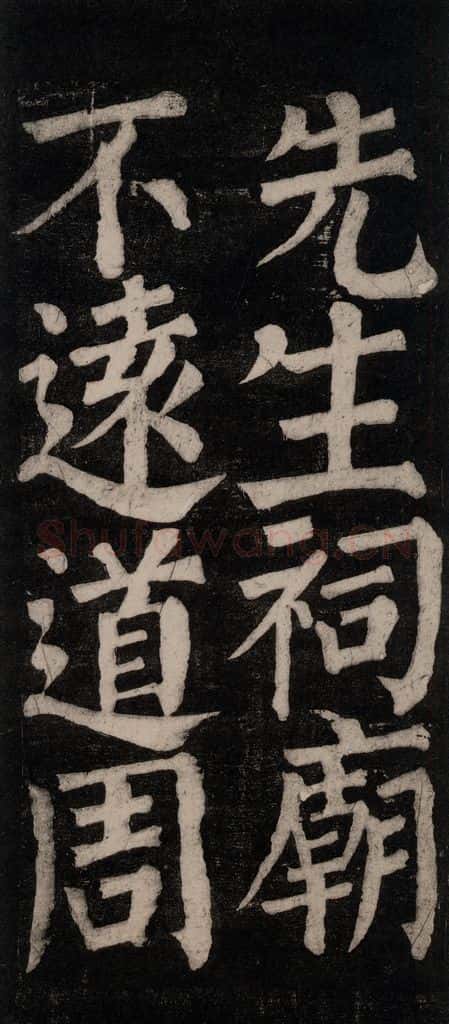 先生祠廟
不遠道周
Shufawang.CN